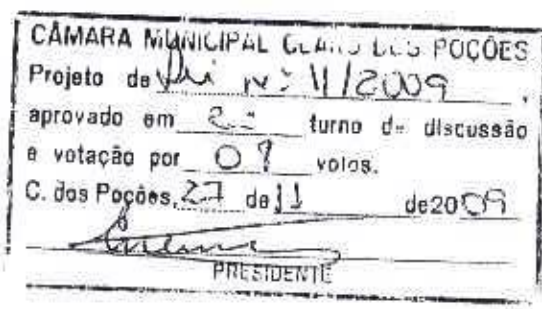 CÂMARA MUNICIPAL CLARO DOS POÇÕES
Projeto de Lei Nº 11/2009,
aprovado em 2º turno de discussão
e votação por 09 votos.
C. dos Poções, 27 de 11 de 2009
PRESIDENTE